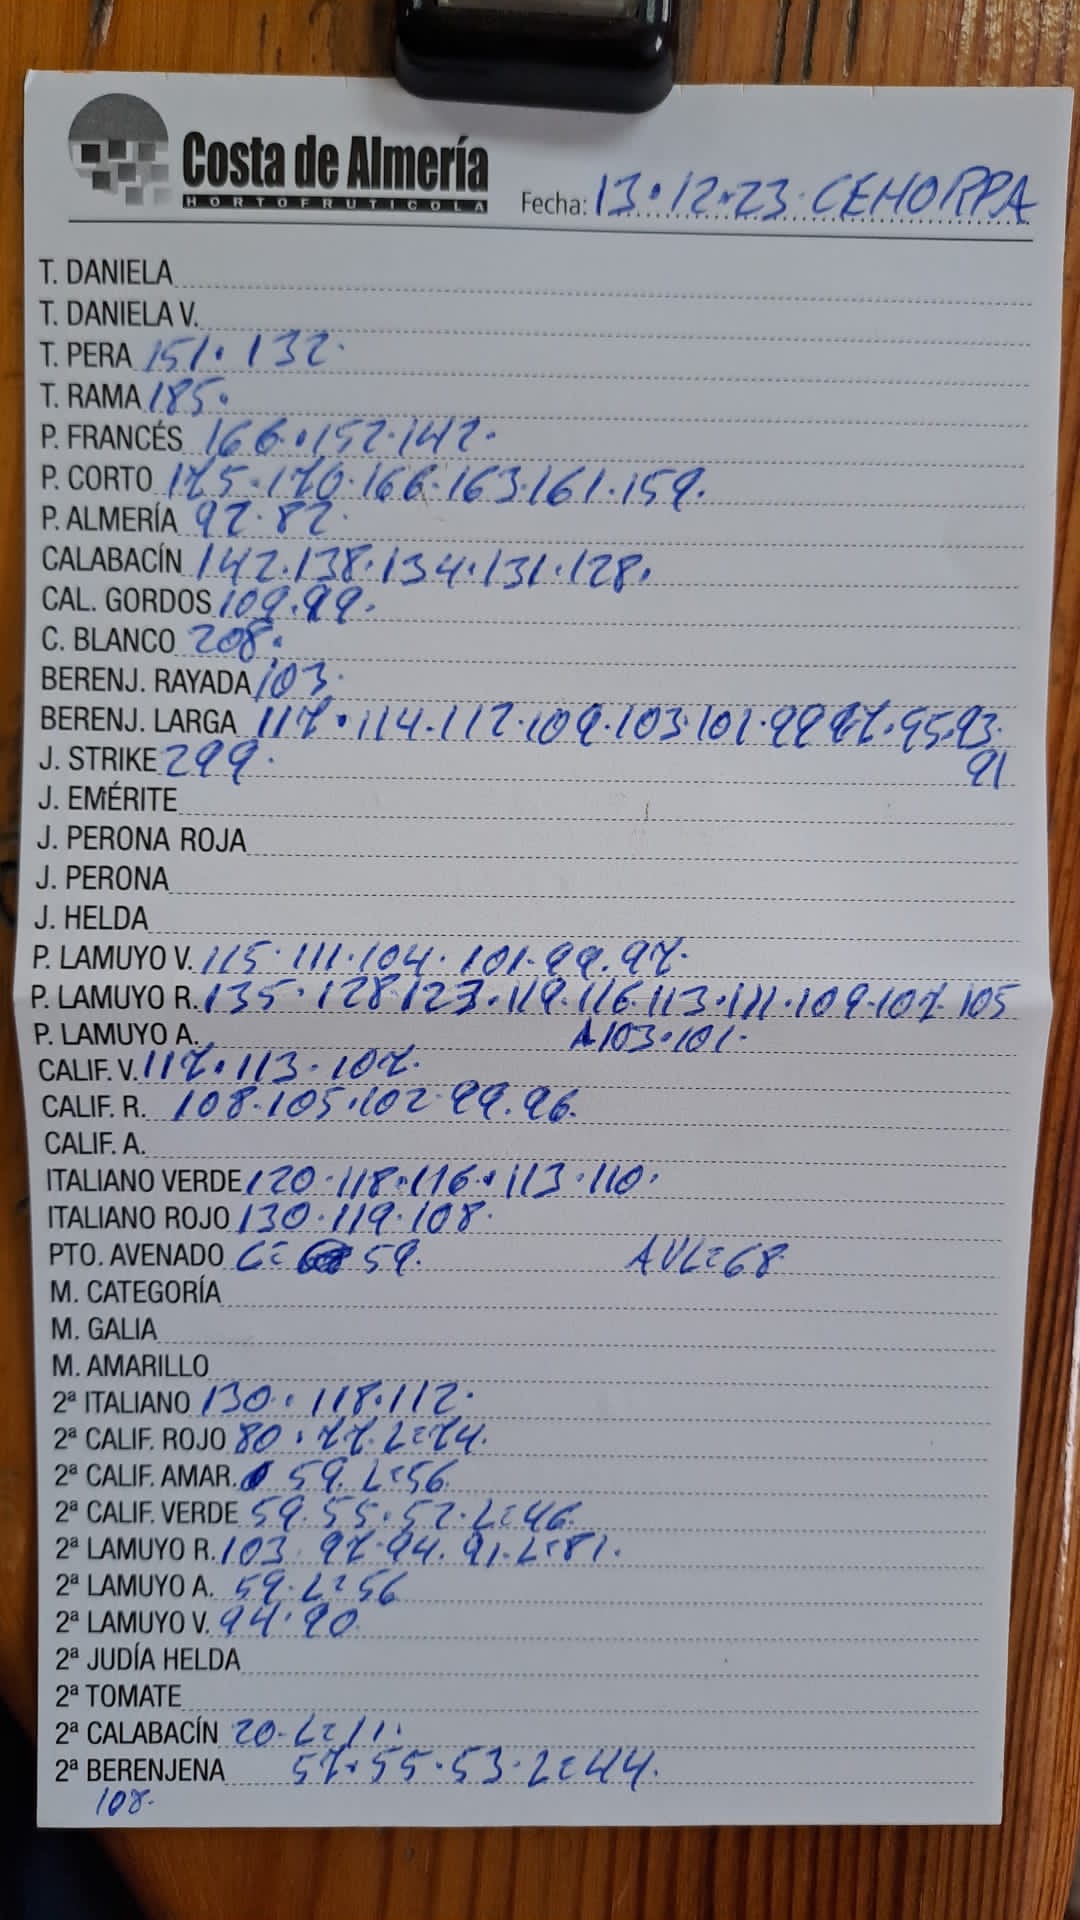 Costa de Almería
HORTOFRUTICOLA
Fecha: 13.12.23. CEHORPA
T. DANIELA
T. DANIELA V.
T. PERA 151. 132.
T. RAMA 185.
P. FRANCÉS 166.152.142.
P. CORTO 175.170.166.163.161.159.
P. ALMERÍA 92.82.
CALABACÍN 142.138.134.131.128.
CAL. GORDOS 109.99.
C. BLANCO 208.
BERENJ. RAYADA 103.
BERENJ. LARGA 117.114.112.109.103.101.99.97.95.93.
J. STRIKE 299. 91
J. EMÉRITE
J. PERONA ROJA
J. PERONA
J. HELDA
P. LAMUYO V. 115.111.104.101.99.97.
P. LAMUYO R. 135.128.123.119.116.113.111.109.107.105
P. LAMUYO A. A103.101.
CALIF. V. 117.113.107.
CALIF. R. 108.105.102.99.96.
CALIF. A.
ITALIANO VERDE 120.118.116.113.110.
ITALIANO ROJO 130.119.108.
PTO. AVENADO C= 59. AVL=68.
M. CATEGORÍA
M. GALIA
M. AMARILLO
2ª ITALIANO 130.118.112.
2ª CALIF. ROJO 80.77.L=74.
2ª CALIF. AMAR. 59.L=56
2ª CALIF. VERDE 59.55.52.L=46.
2ª LAMUYO R. 103.97.94.91.L=81.
2ª LAMUYO A. 59.L=56
2ª LAMUYO V. 94.90.
2ª JUDÍA HELDA
2ª TOMATE
2ª CALABACÍN 20.L=11.
2ª BERENJENA 57.55.53.L=44.
108.